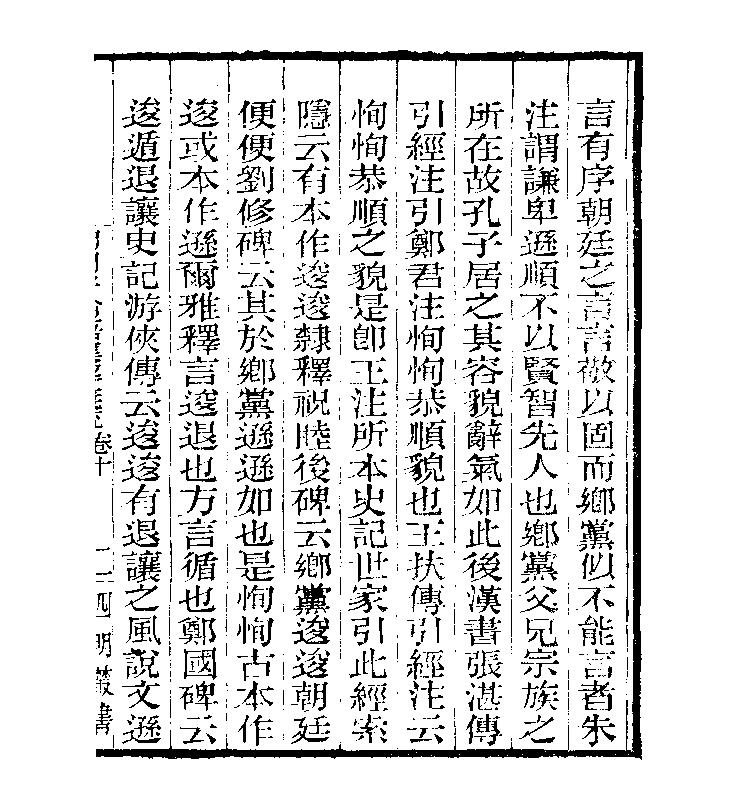 言有序朝廷之言言敬以固而鄉黨似不能言者朱
注謂謙卑遜順不以賢智先人也鄉黨父兄宗族之
所在故孔子居之其容貌辭氣如此後漢書張湛傳
引經注引鄭君注恂恂恭順貌也王扶傳引經注云
恂恂恭順之貌是卽王注所本史記世家引此經索
隱云有本作逡逡隸釋祝睦後碑云鄉黨逡逡朝廷
便便劉修碑云其於鄉黨遜遜如也是恂恂古本作
逡或本作遜爾雅釋言逡退也方言循也鄭國碑云
逡遁退讓史記游俠傳云逡逡有退讓之風說文遜
卷十 二 四明叢書